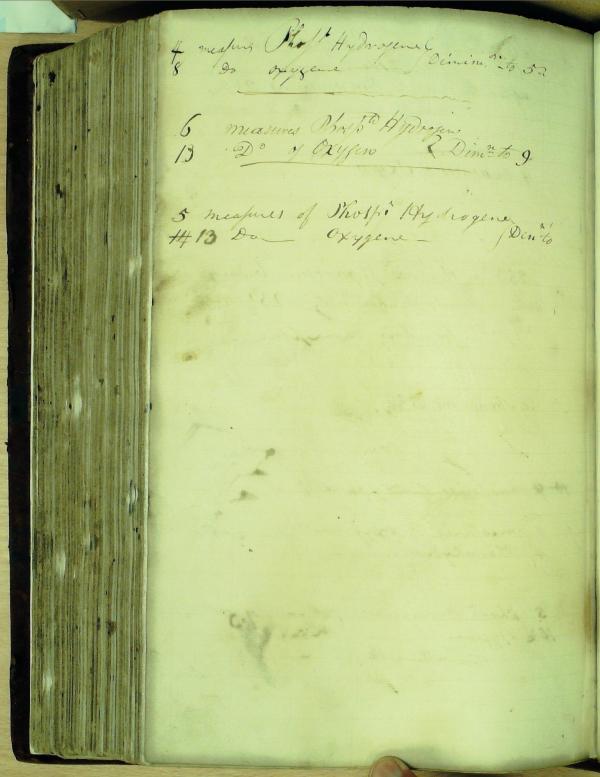 4 measures Phosd Hydrogene
8 do oxygene Dimin.on to 5
6 measures Phosptd Hydrogene
13 Do of Oxygen Dimn to 9
5 measures of Phospd Hydrogene
13 Do Oxygene Dimn to